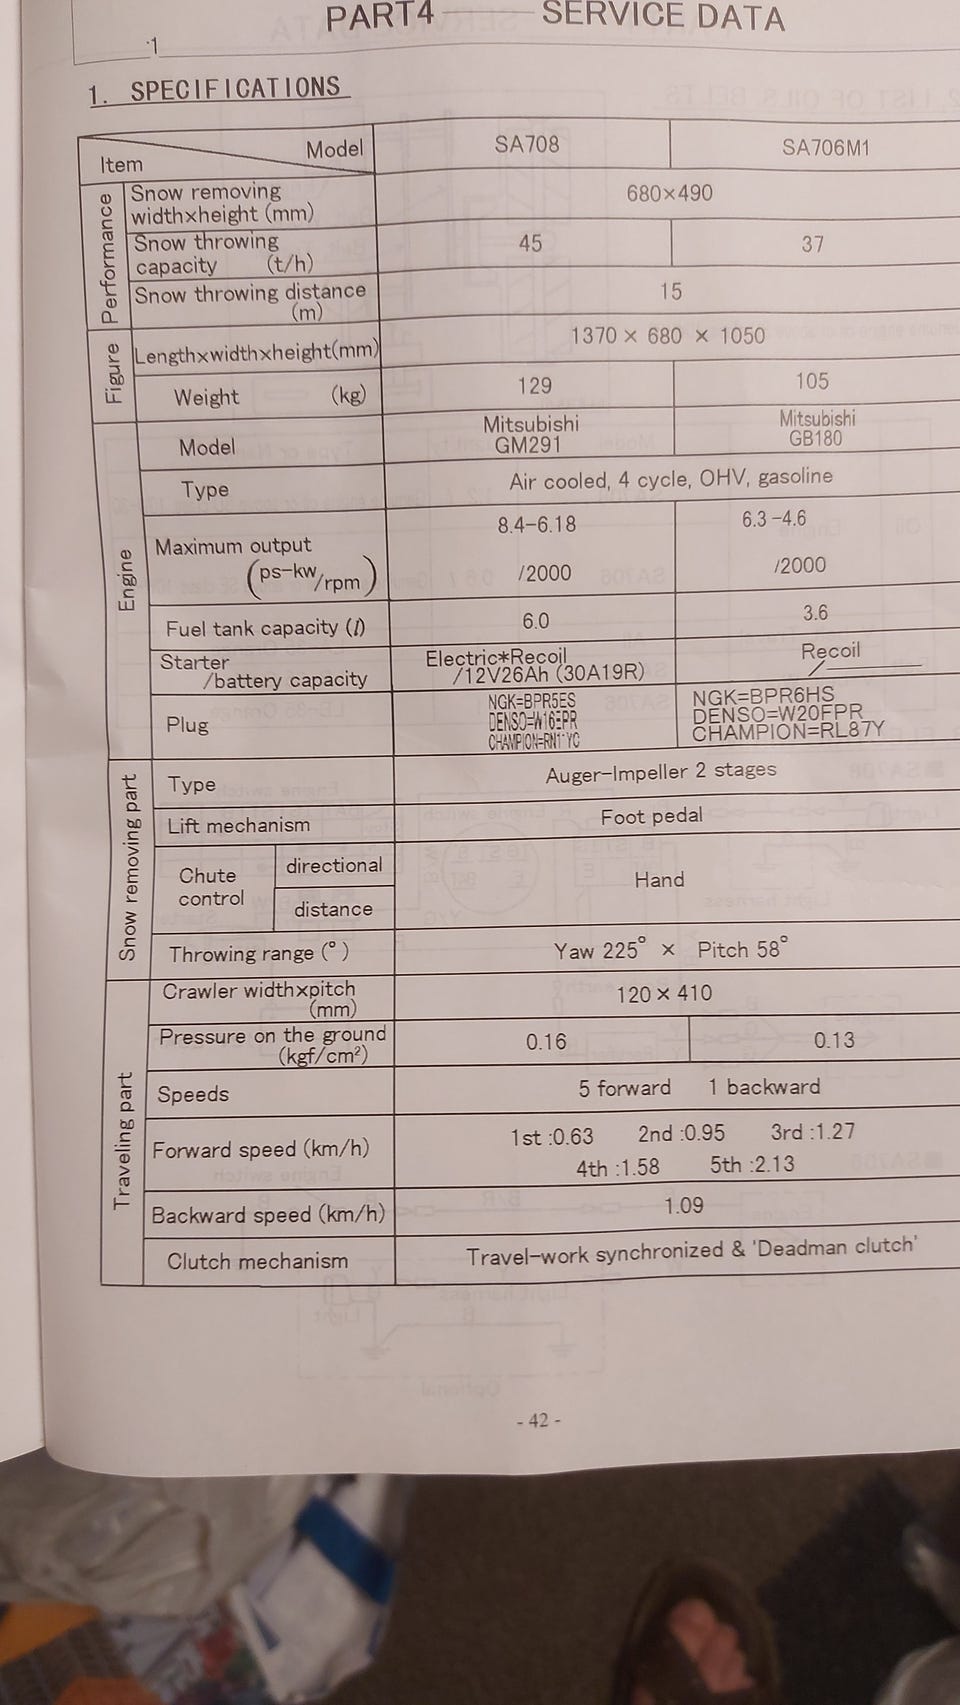 PART4 SERVICE DATA
1
1. SPECIFICATIONS
Item Model SA708 SA706M1
Performance
Snow removing
width×height (mm) 680×490
Snow throwing
capacity (t/h) 45 37
Snow throwing distance
(m) 15
Figure
Length×width×height(mm) 1370 × 680 × 1050
Weight (kg) 129 105
Engine
Model Mitsubishi Mitsubishi
GM291 GB180
Type Air cooled, 4 cycle, OHV, gasoline
Maximum output 8.4-6.18 6.3-4.6
(ps-kw/rpm) /2000 /2000
Fuel tank capacity (l) 6.0 3.6
Starter Electric*Recoil Recoil
/battery capacity /12V26Ah (30A19R) /
Plug
NGK=BPR5ES NGK=BPR6HS
DENSO=W16EPR DENSO=W20FPR
CHAMPION=RN11YC CHAMPION=RL87Y
Snow removing part
Type Auger-Impeller 2 stages
Lift mechanism Foot pedal
Chute
control
directional
distance
Hand
Throwing range (°) Yaw 225° × Pitch 58°
Traveling part
Crawler width×pitch
(mm) 120 × 410
Pressure on the ground
(kgf/cm²) 0.16 0.13
Speeds 5 forward 1 backward
Forward speed (km/h) 1st :0.63 2nd :0.95 3rd :1.27
4th :1.58 5th :2.13
Backward speed (km/h) 1.09
Clutch mechanism Travel-work synchronized & 'Deadman clutch'
- 42 -